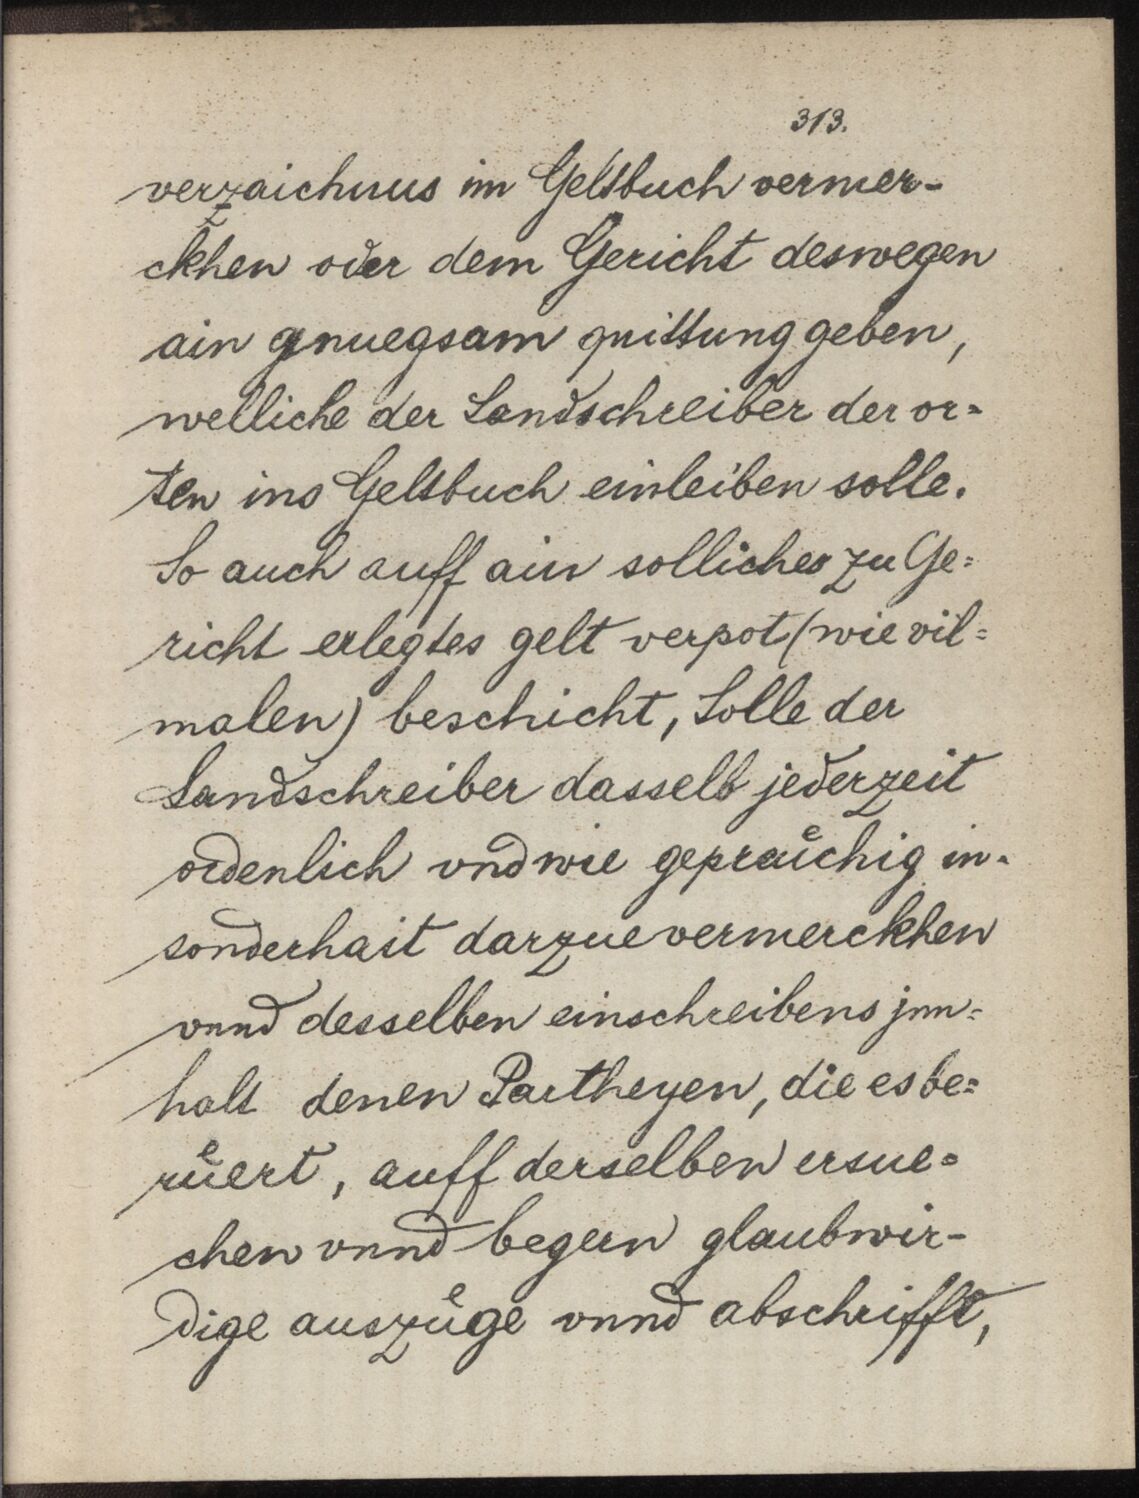 313.
verzaichnus im Geltbuch vermer-
ckhen oder dem Gericht deswegen
ain gnuegsam quittung geben,
welliche der Landschreiber der or=
ten ins Geltbuch einleiben solle.
So auch auff ain solliches zu Ge=
richt erlegtes gelt verpot (wie vil=
malen) beschicht, Solle der
Landschreiber dasselb jederzeit
ordenlich vnd wie gepraͤuchig in-
sonderhait darzue vermerckhen
vnnd desselben einschreibens jnn=
halt denen Partheyen, die es be=
ruͤert, auff derselben ersue=
chen vnnd begern glaubwir-
dige auszuͤge vnnd abschrifft,